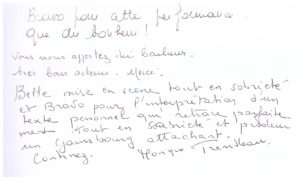 Bravo pour cette performance.
que du bonheur !
Vous nous apportez du bonheur.
très bons acteurs. Merci.
Belle mise en scène tout en sobriété
et Bravo pour l'interprétation d'un
texte personnel qui retrace parfaite
ment tout en sobriété et pudeur
un Gainsbourg attachant.
Continuez.